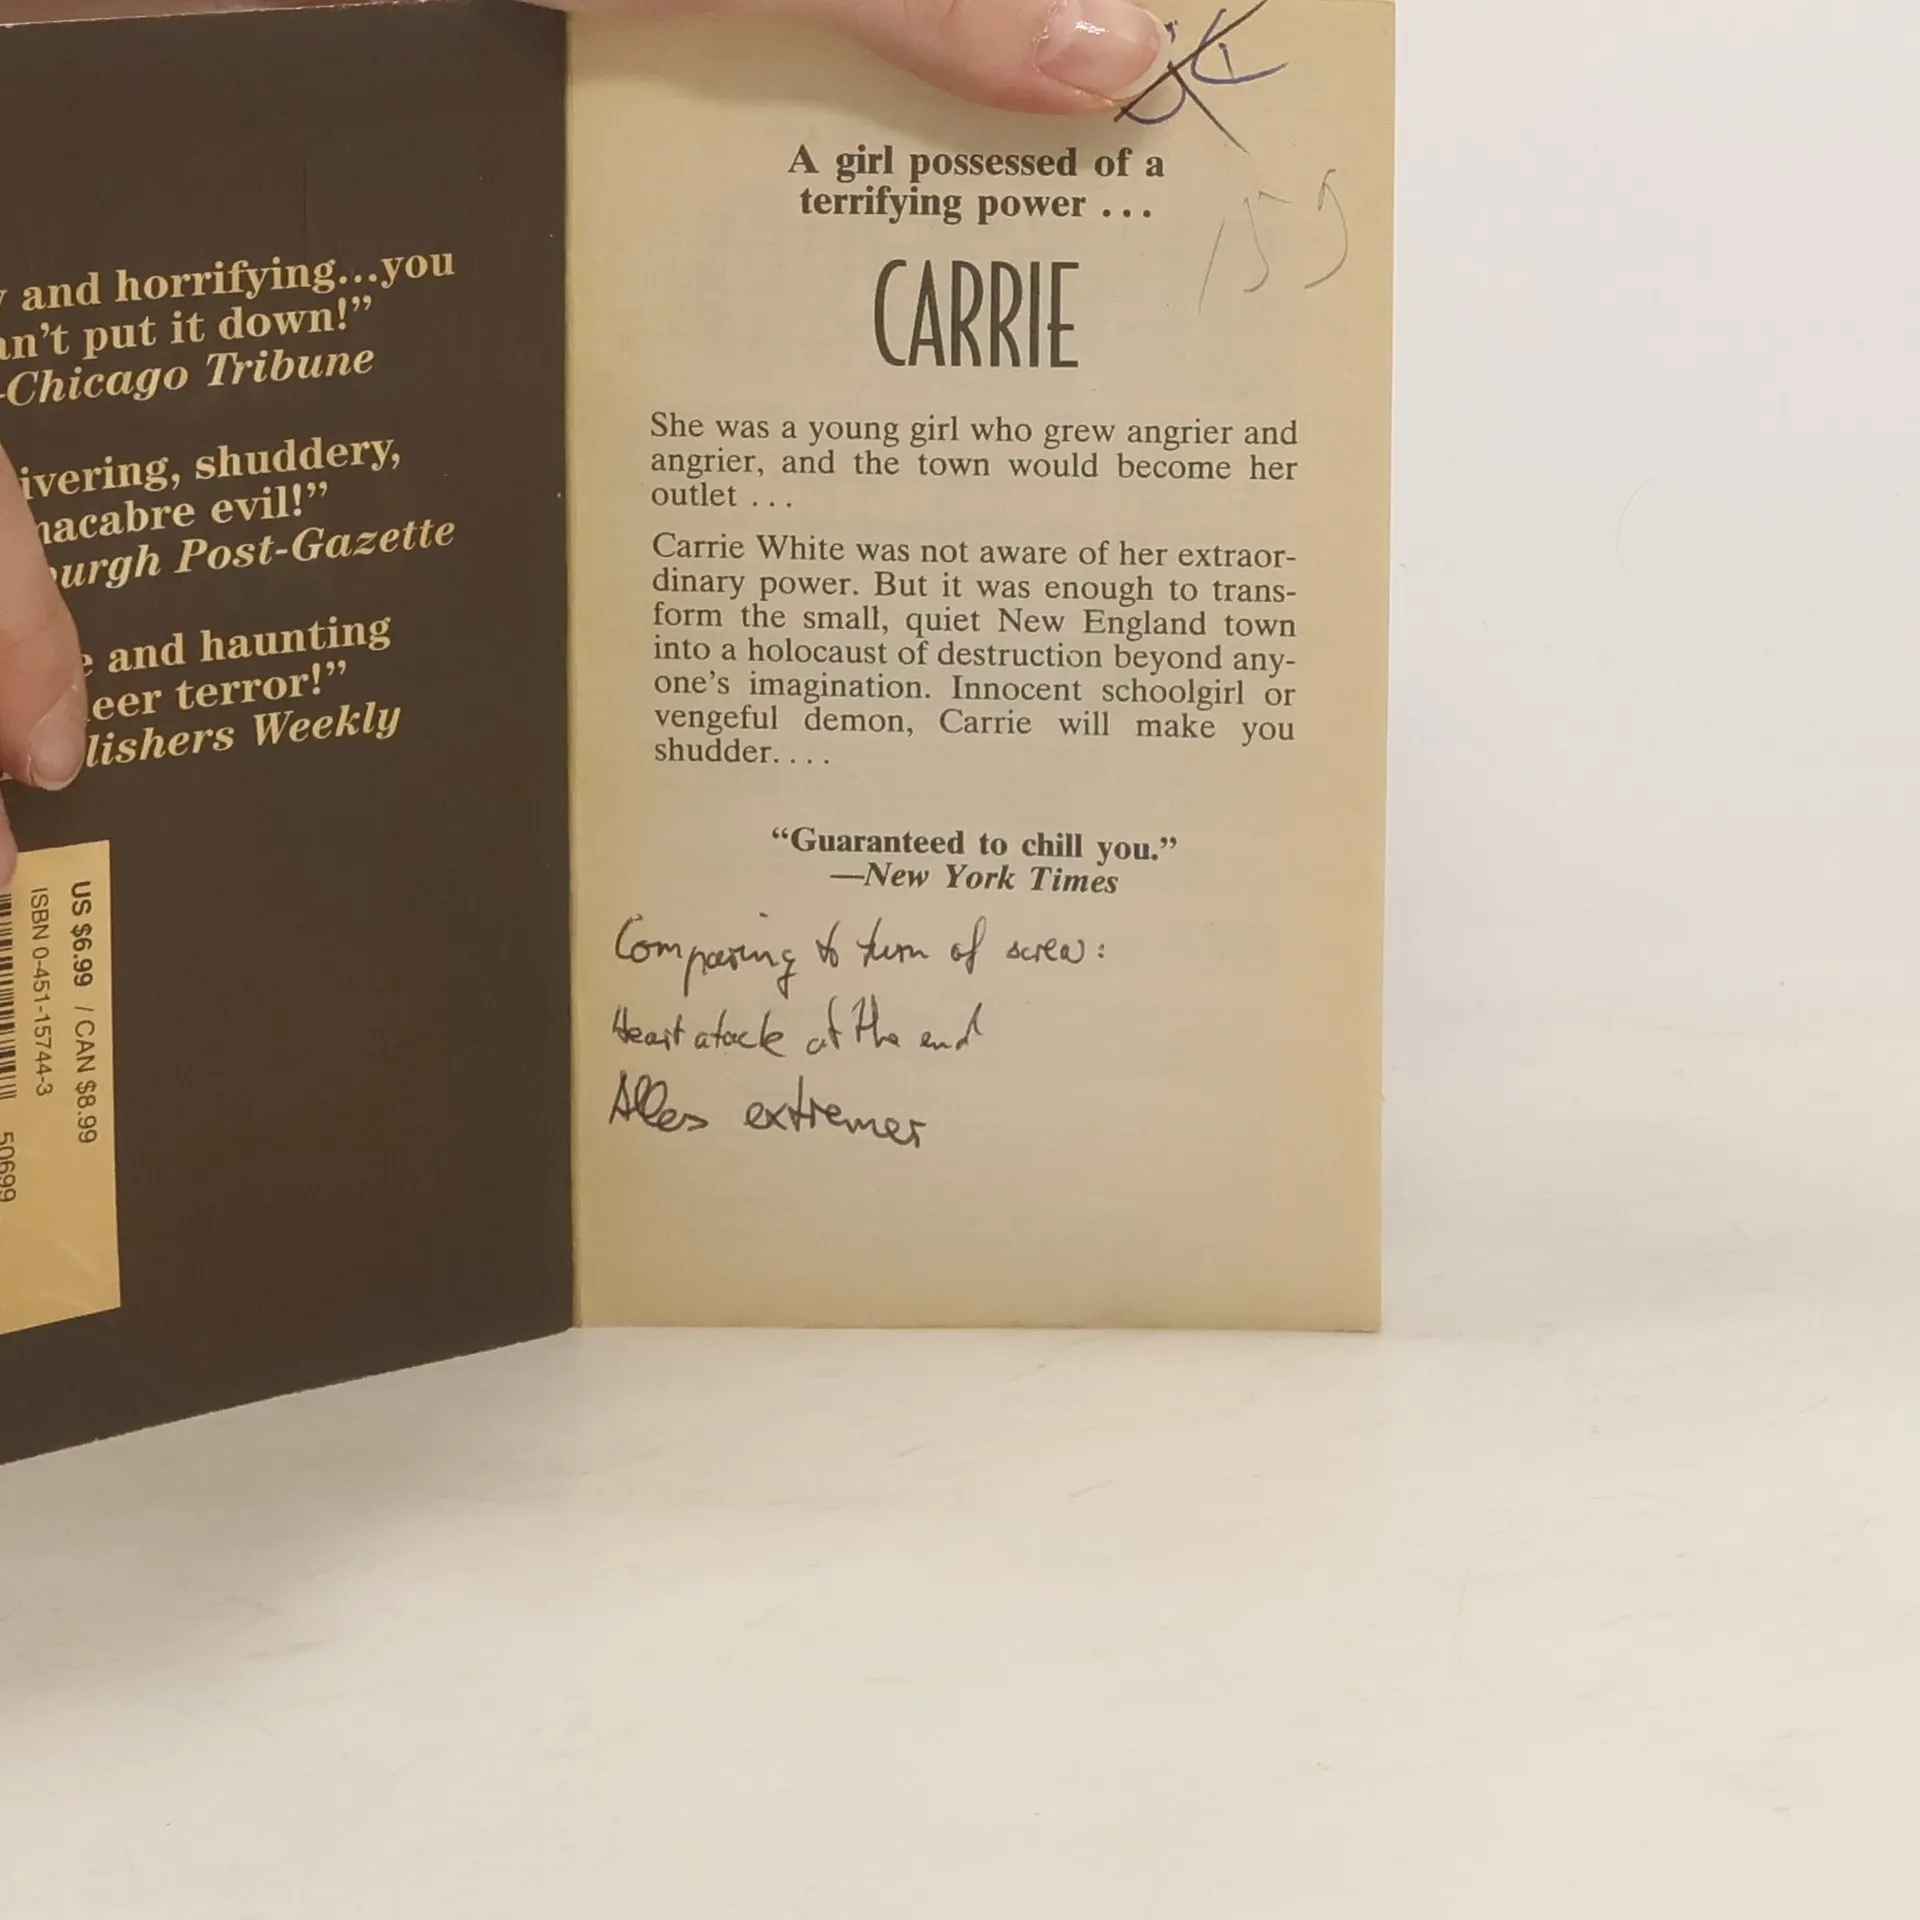 and horrifying...you
an't put it down!”
-Chicago Tribune
ivering, shuddery,
macabre evil!”
burgh Post-Gazette
e and haunting
eer terror!”
lishers Weekly
US $6.99 / CAN $8.99
ISBN 0-451-15744-3
50699
A girl possessed of a
terrifying power ...
CARRIE
159
She was a young girl who grew angrier and
angrier, and the town would become her
outlet ...
Carrie White was not aware of her extraor-
dinary power. But it was enough to trans-
form the small, quiet New England town
into a holocaust of destruction beyond any-
one's imagination. Innocent schoolgirl or
vengeful demon, Carrie will make you
shudder....
“Guaranteed to chill you.”
—New York Times
Comparing to turn of screw:
Heart atack at the end
Alles extremer